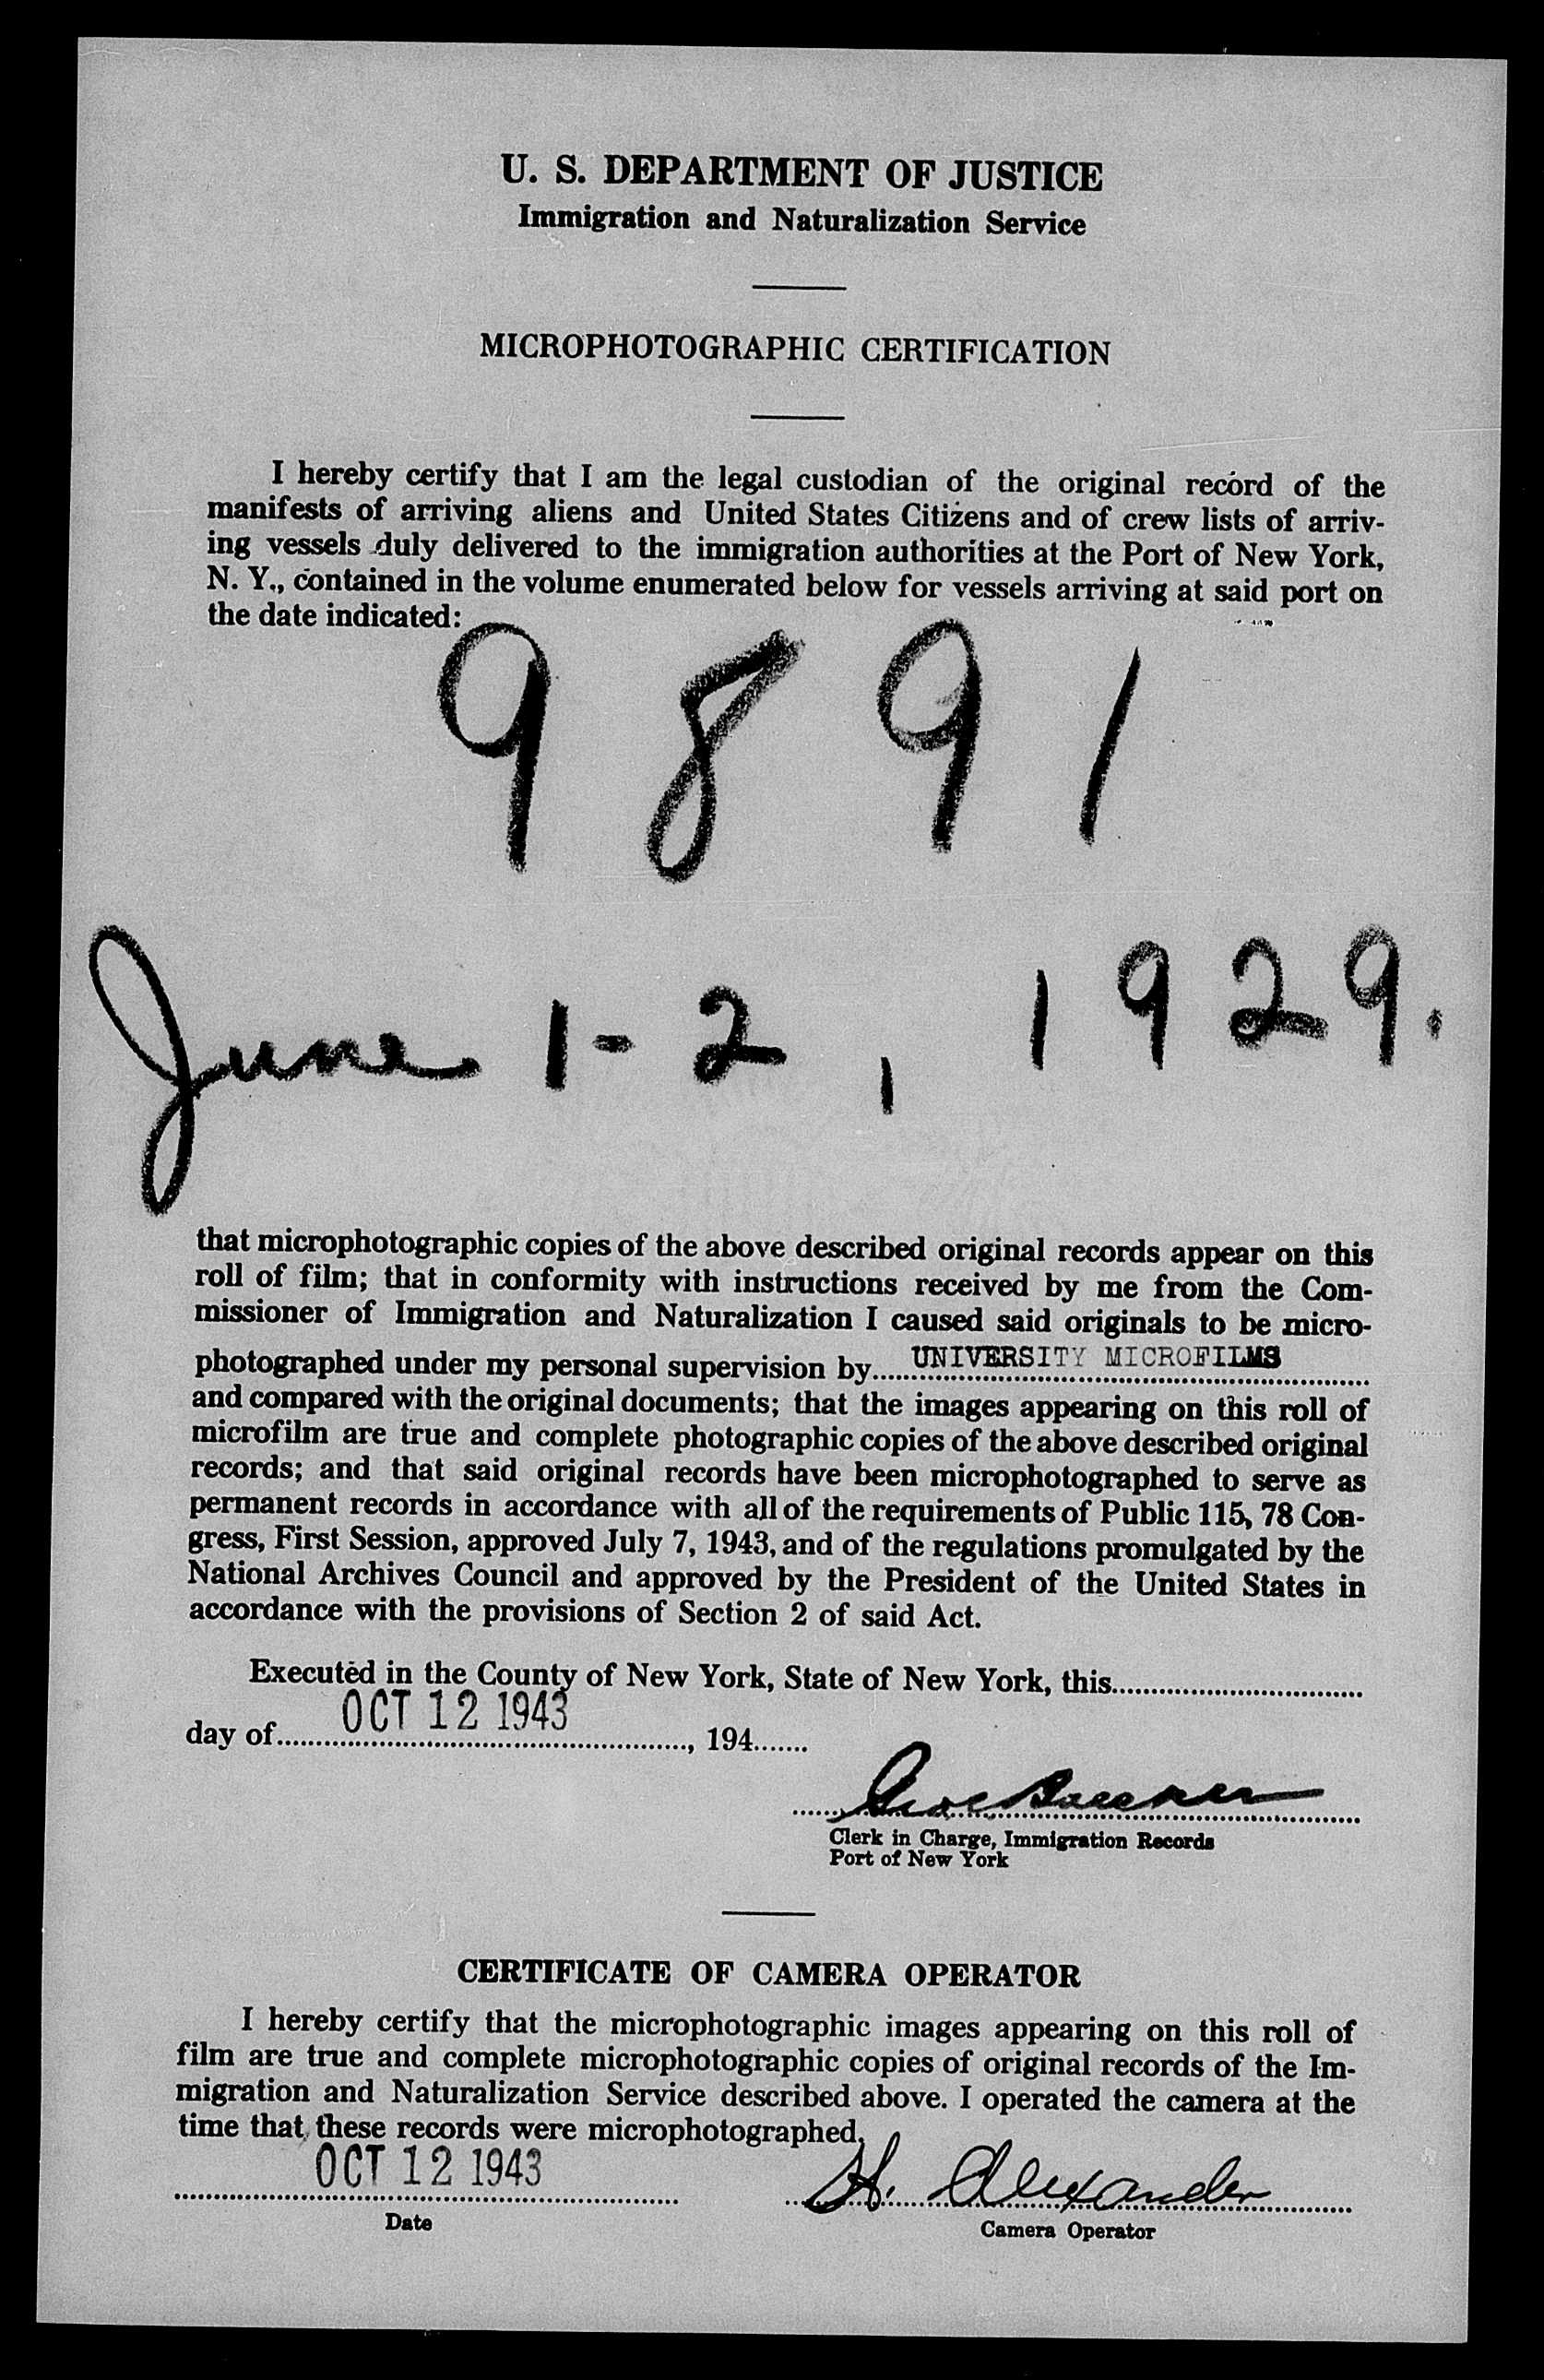 U. S. DEPARTMENT OF JUSTICE
Immigration and Naturalization Service
MICROPHOTOGRAPHIC CERTIFICATION
I hereby certify that I am the legal custodian of the original record of the
manifests of arriving aliens and United States Citizens and of crew lists of arriv-
ing vessels duly delivered to the immigration authorities at the Port of New York,
N. Y., contained in the volume enumerated below for vessels arriving at said port on
the date indicated:
9891
June 1-2, 1929.
that microphotographic copies of the above described original records appear on this
roll of film; that in conformity with instructions received by me from the Com-
missioner of Immigration and Naturalization I caused said originals to be micro-
photographed under my personal supervision by UNIVERSITY MICROFILMS
and compared with the original documents; that the images appearing on this roll of
microfilm are true and complete photographic copies of the above described original
records; and that said original records have been microphotographed to serve as
permanent records in accordance with all of the requirements of Public 115, 78 Con-
gress, First Session, approved July 7, 1943, and of the regulations promulgated by the
National Archives Council and approved by the President of the United States in
accordance with the provisions of Section 2 of said Act.
Executed in the County of New York, State of New York, this
day of OCT 12 1943, 194
Clerk in Charge, Immigration Records
Port of New York
CERTIFICATE OF CAMERA OPERATOR
I hereby certify that the microphotographic images appearing on this roll of
film are true and complete microphotographic copies of original records of the Im-
migration and Naturalization Service described above. I operated the camera at the
time that these records were microphotographed.
OCT 12 1943 H. Alexander
Date Camera Operator